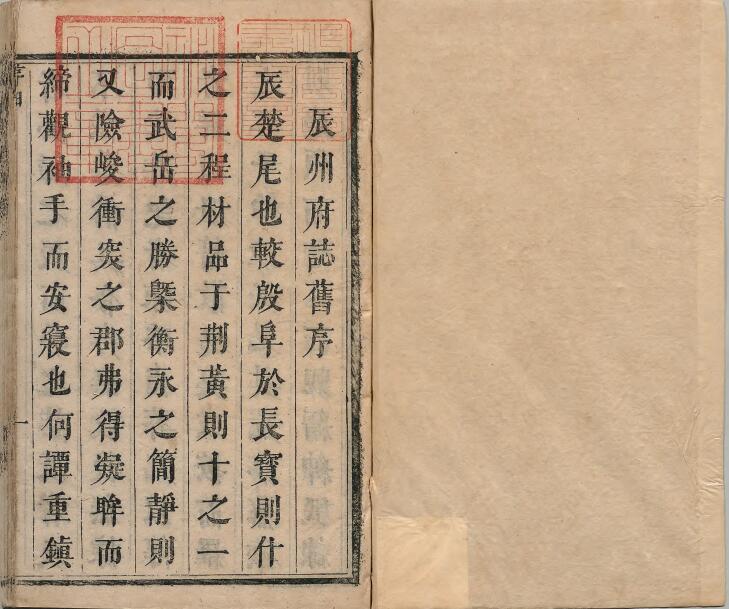 辰州府誌舊序
辰楚尾也較殷阜於長寶則什
之二程材品于荆黃則十之一
而武岳之勝槩衡永之簡靜則
又險峻衝突之郡弗得凝眸而
締觀袖手而安寢也何譚重鎮
序四
一